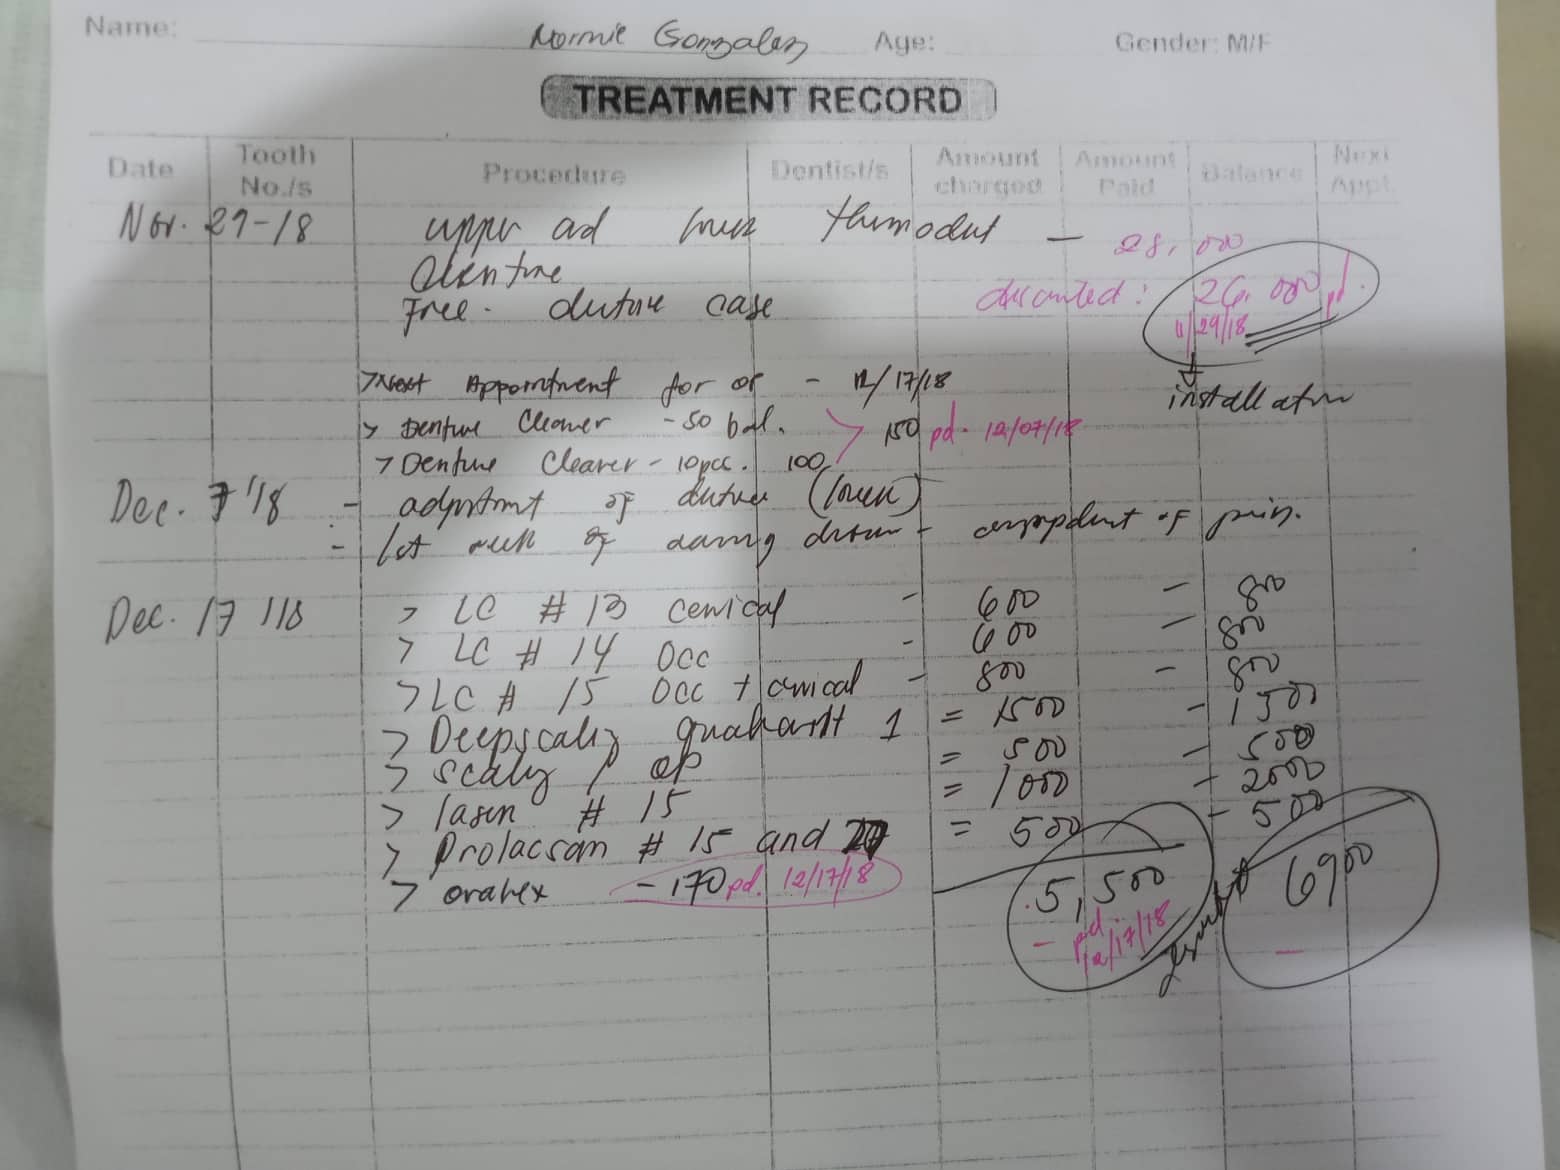 Name: Normie Gonzales Age: Gender: M/F
TREATMENT RECORD
Date Tooth No./s Procedure Dentist/s Amount charged Amount Paid Balance Next Appt.
Nov. 29-18 upper ad lower - 28,000
Denture discounted: 26,000 pd.
Free - denture case 11/29/18
installation
>Next Appointment for op - 12/17/18
> Denture Cleaner - 50 bal. 150 pd. 12/07/18
> Denture Cleaner - 10pcs. 100
Dec. 7 '18 - adjustment of denture (lower)
- of pain.
Dec. 17 '18 > LC # 13 cervical - 600 - 800
> LC # 14 Occ - 600 - 800
> LC # 15 Occ + cervical - 800 - 800
> Deepscaling quadrant 1 = 1500 - 1500
> scaling / op = 500 - 500
> laser # 15 = 1000 - 2000
> Prolacsan # 15 and = 500 - 500
> orahex - 170 pd. 12/17/18 5,500 6900
- pd. 12/17/18 -